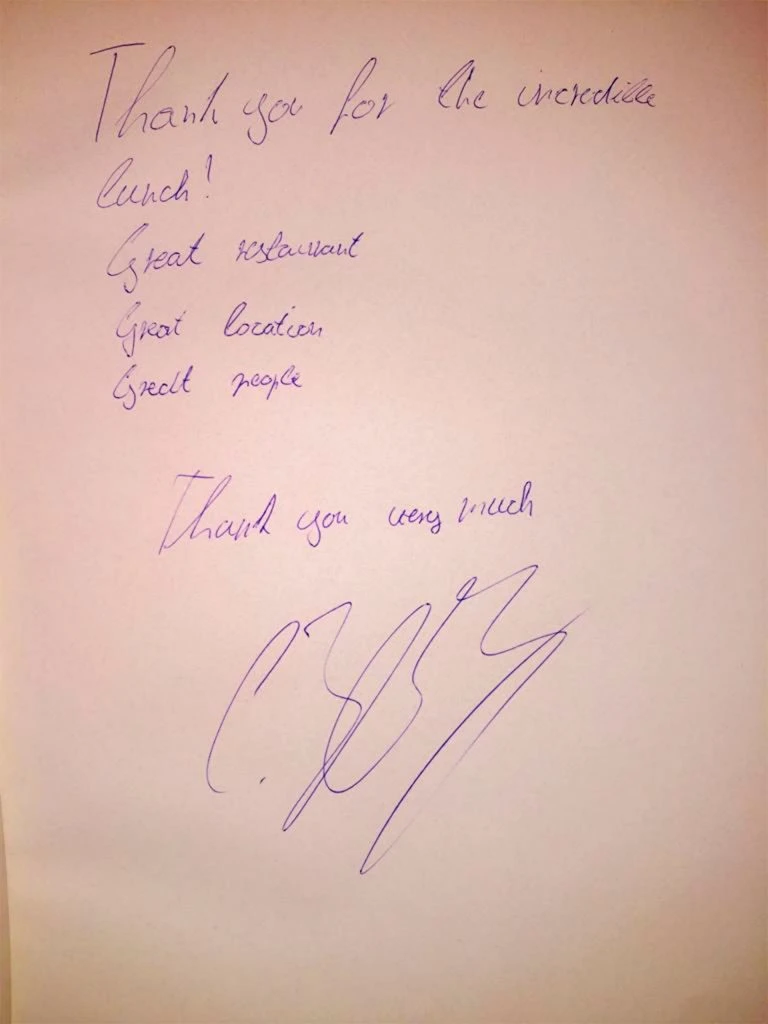 Thank you for the incredible
lunch!
Great restaurant
Great location
Great people
Thank you very much